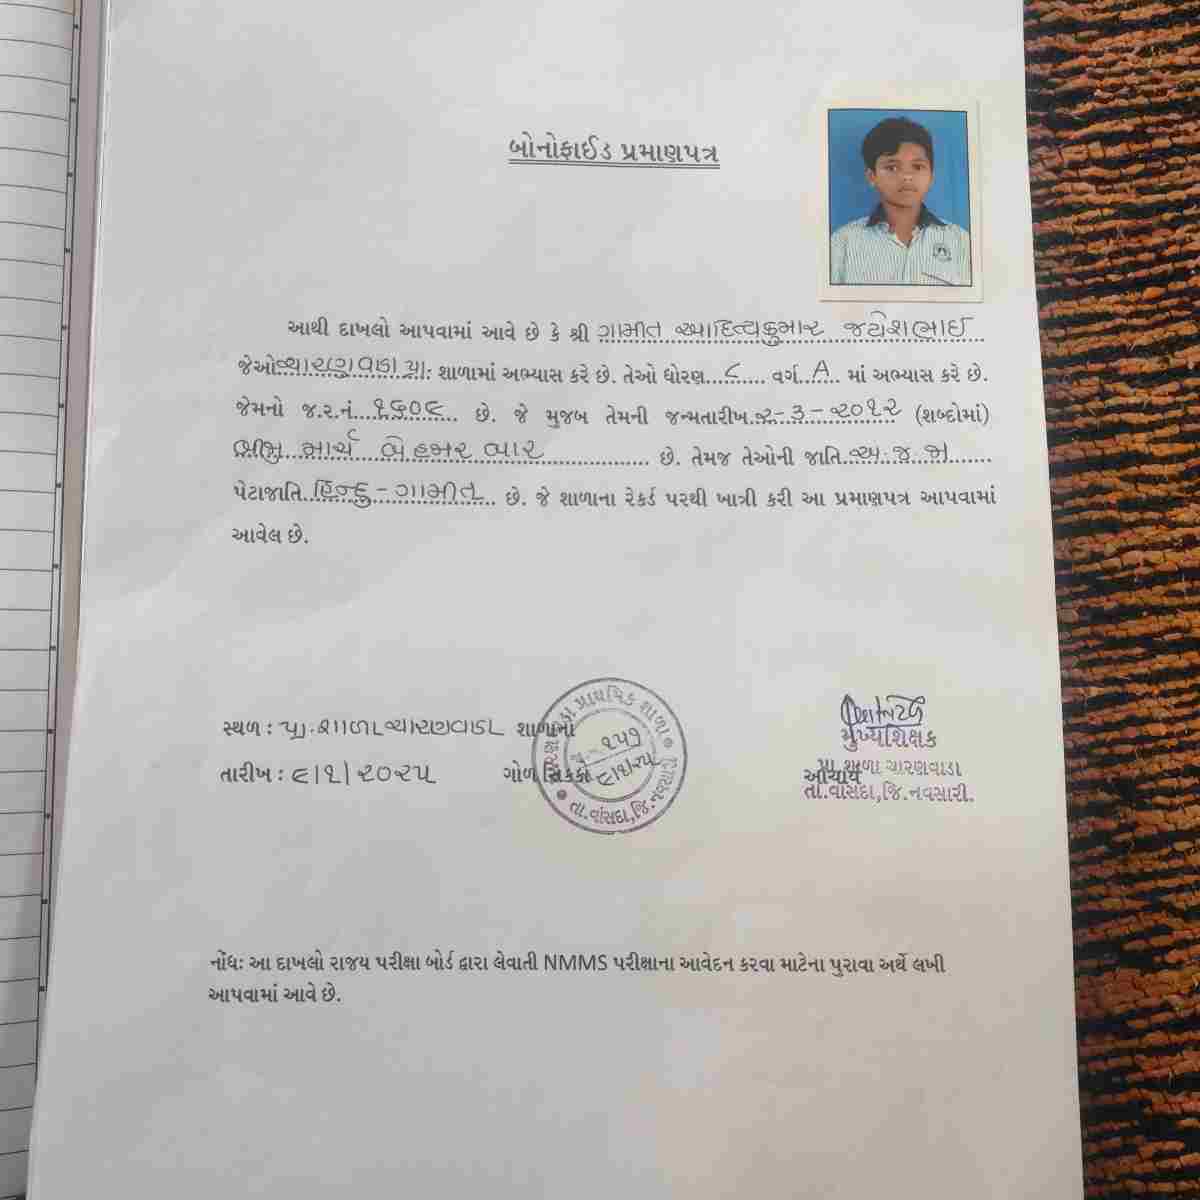 બોનોફાઈડ પ્રમાણપત્ર
આથી દાખલો આપવામાં આવે છે કે શ્રી ગામીત આદિત્યકુમાર જયેશભાઈ
જેઓ ચારણવાડા પ્રા. શાળામાં અભ્યાસ કરે છે. તેઓ ધોરણ...૮...... વર્ગ...A... માં અભ્યાસ કરે છે.
જેમનો જ.ર.નં...૧૬૦૯... છે. જે મુજબ તેમની જન્મતારીખ..૨-૩-૨૦૧૨ (શબ્દોમાં)
માર્ચ બેહજાર બાર ........................ છે. તેમજ તેઓની જાતિ...અ.જ.જા......
પેટાજાતિ..હિન્દુ-ગામીત.. છે. જે શાળાના રેકર્ડ પરથી ખાત્રી કરી આ પ્રમાણપત્ર આપવામાં
આવેલ છે.
સ્થળ : પ્રા.શાળા ચારણવાડા શાળાનો
તારીખ : ૯/૧/૨૦૨૫ ગોળ સિક્કો
પ્રાથમિક શાળા
૧૫૧
૯/૧/૨૫
તા.વાંસદા,જિ.નવસારી
મુખ્યશિક્ષક
પ્રા.શાળા ચારણવાડા
આચાર્ય
તા.વાંસદા,જિ.નવસારી.
નોંધ: આ દાખલો રાજય પરીક્ષા બોર્ડ દ્વારા લેવાતી NMMS પરીક્ષાના આવેદન કરવા માટેના પુરાવા અર્થે લખી
આપવામાં આવે છે.